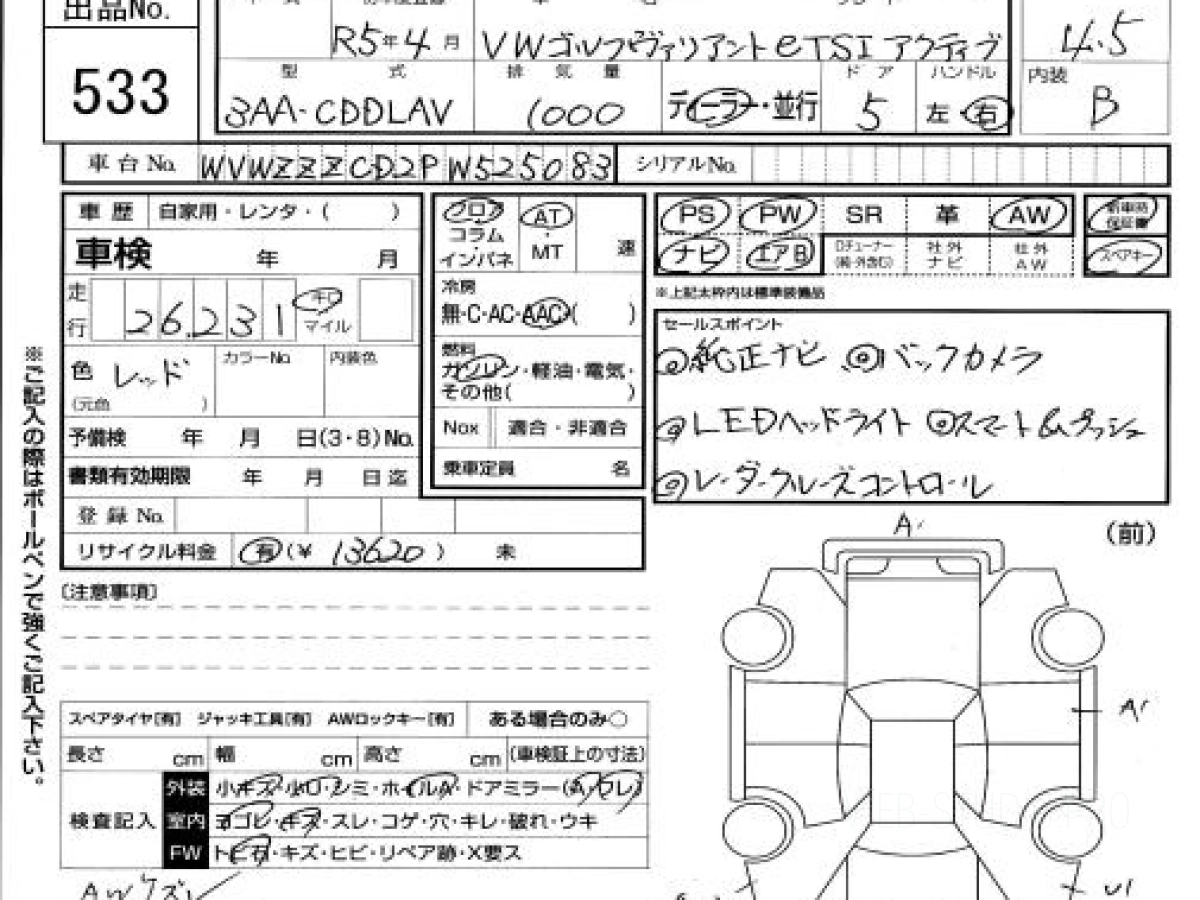 出品No.
533
R5年4月
VWゴルフヴァリアントeTSIアクティブ
4.5
型 式
排 気 量
ドア
ハンドル
内装
3AA-CDDLAV
1000
ディーラー・並行
5
左・右
B
車台No.
WVWZZZCD2PW525083
シリアルNo.
車歴 自家用・レンタ・( )
車検 年 月
走行
26,231
キロ
マイル
色 レッド
(元色 )
カラーNo.
内装色
予備検 年 月 日(3・8)No.
書類有効期限 年 月 日迄
登録No.
リサイクル料金 有(¥ 13620 ) 未
フロア
コラム
インパネ
AT
・
MT
速
冷房
無・C・AC・AAC( )
燃料
ガソリン・軽油・電気・
その他( )
Nox 適合・非適合
乗車定員 名
PS PW SR 革 AW
新車時保証書
ナビ エアB
Dチューナー
社外ナビ
社外AW
スペアキー
※上記太枠内は標準装備品
セールスポイント
◎純正ナビ ◎バックカメラ
◎LEDヘッドライト ◎スマート&プッシュ
◎レーダークルーズコントロール
※ご記入の際はボールペンで強くご記入下さい。
〔注意事項〕
A1
(前)
A1
スペアタイヤ[有] ジャッキ工具[有] AWロックキー[有] ある場合のみ○
長さ cm 幅 cm 高さ cm (車検証上の寸法)
検査記入
外装 小キズ・小凹・シミ・ホイルA・ドアミラー(A,ワレ)
室内 ヨゴレ・キズ・スレ・コゲ・穴・キレ・破れ・ウキ
FW トビ石・キズ・ヒビ・リペア跡・X要ス
AWケズレ
U1